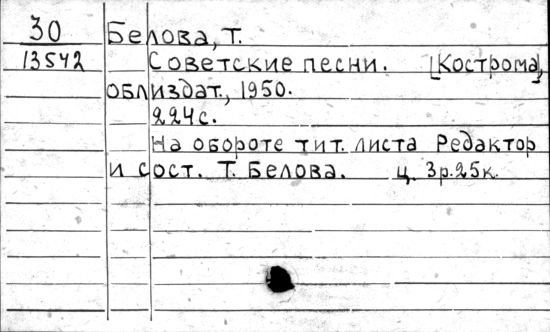 30 Белова, Т.
13542 Советские песни. [Кострома],
облиздат., 1950.
224с.
На обороте тит. листа Редактор
и сост. Т. Белова. ц. 3р.25к.